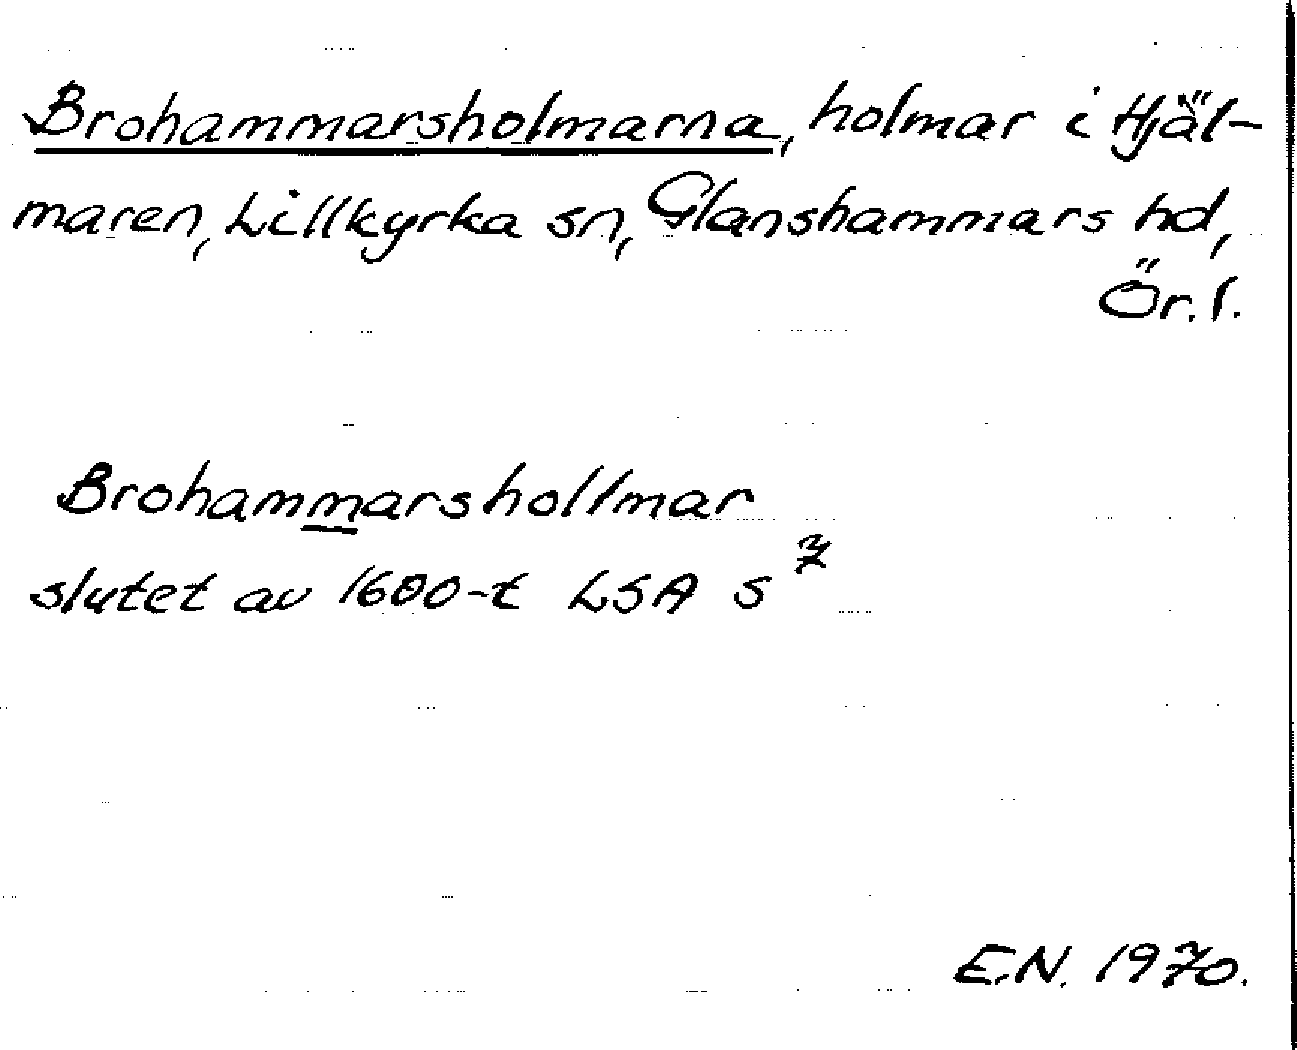 Brohammarsholmarna, holmar i Hjäl-
maren, Lillkyrka sn, Glanshammars hd,
Ör. l.
Brohammarshollmar
slutet av 1600-t LSA S 7
E.N. 1970.